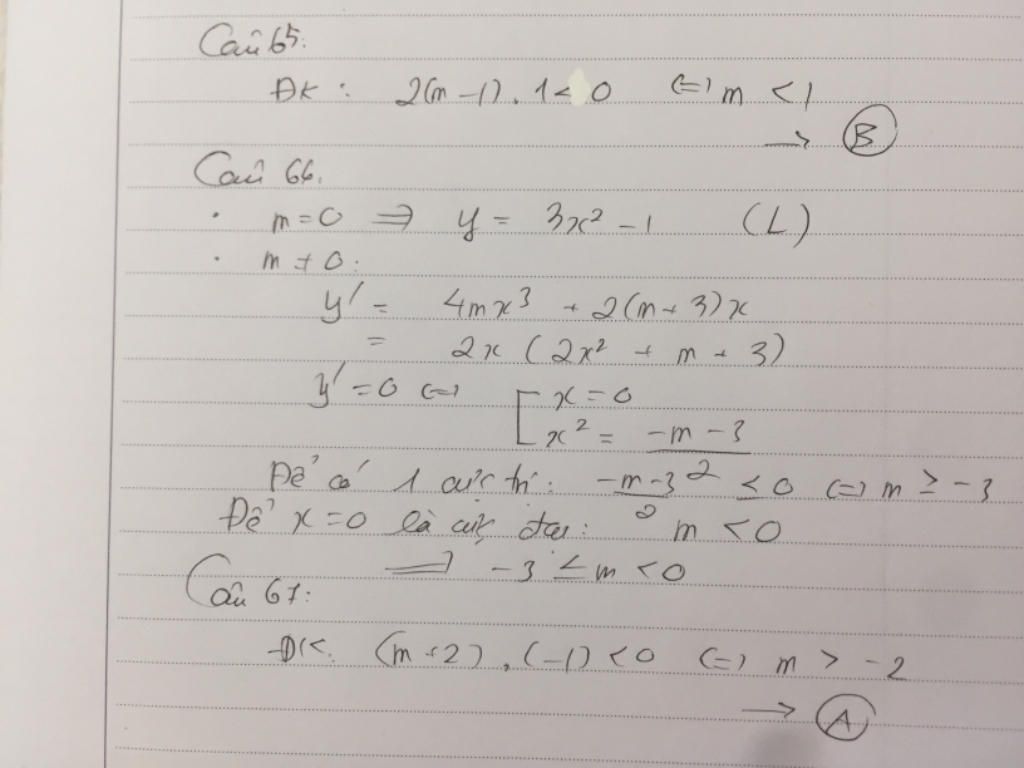 Câu 65:
ĐK: 2(m-1).1 < 0 (=) m < 1
→ (B)
Câu 66.
• m=0 => y = 3x² - 1 (L)
• m ≠ 0:
y' = 4mx³ + 2(m+3)x
= 2x (2x² + m + 3)
y' = 0 (=) [ x = 0
x² = (-m-3)/2
Để có 1 cực trị: (-m-3)/2 ≤ 0 (=) m ≥ -3
Để x=0 là cực đại: m < 0
=> -3 ≤ m < 0
Câu 67:
ĐK: (m+2).(-1) < 0 (=) m > -2
→ (A)